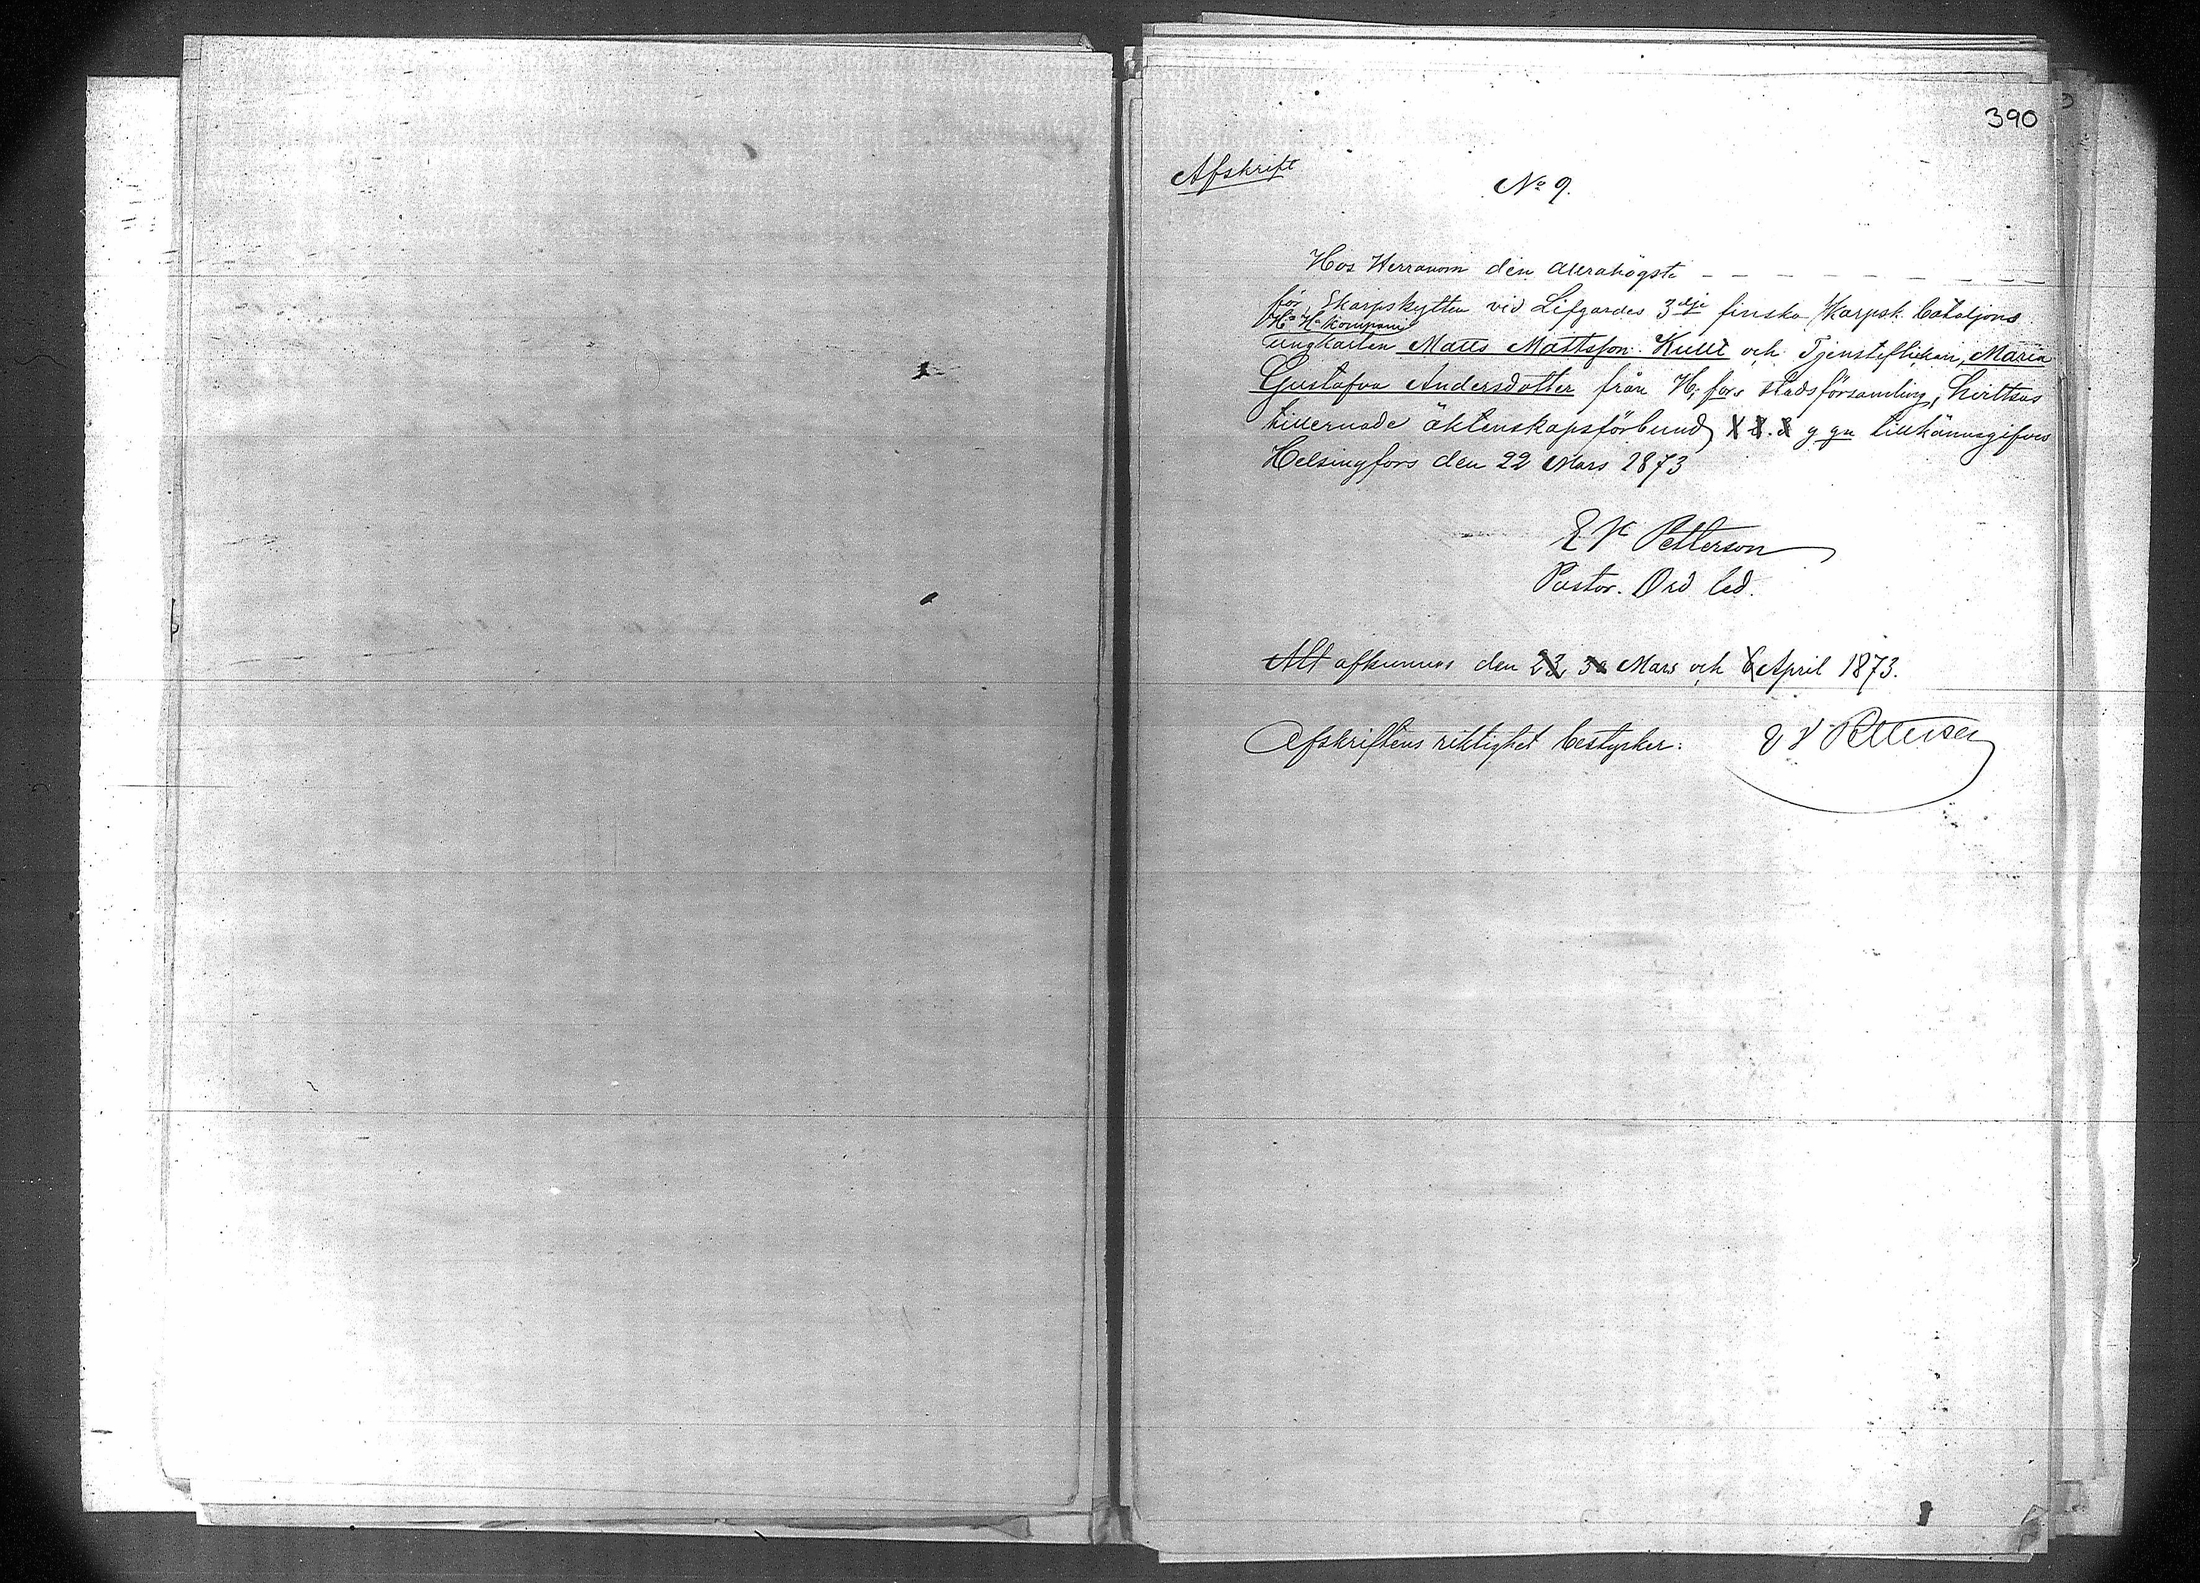 390
Afskrift
No 9.
Hos Herranom den allrahögste
för Skarpskytten vid Lifgardes 3dje finska skarpsk. bataljons
Hs Hs kompani
ungkarlen Matts Mattsson Kulli och Tjensteflickan, Maria
Gustafva Andersdotter från H:fors stadsförsamling,
tillernade äktenskapsförbund g gn tillkännagifves
Helsingfors den 22 Mars 1873
E V Petterson
Pastor. Ord led.
Allt afkunnas den 23, 30 Mars och 6 April 1873.
Afskriftens riktighet bestyrker: E V Petterson